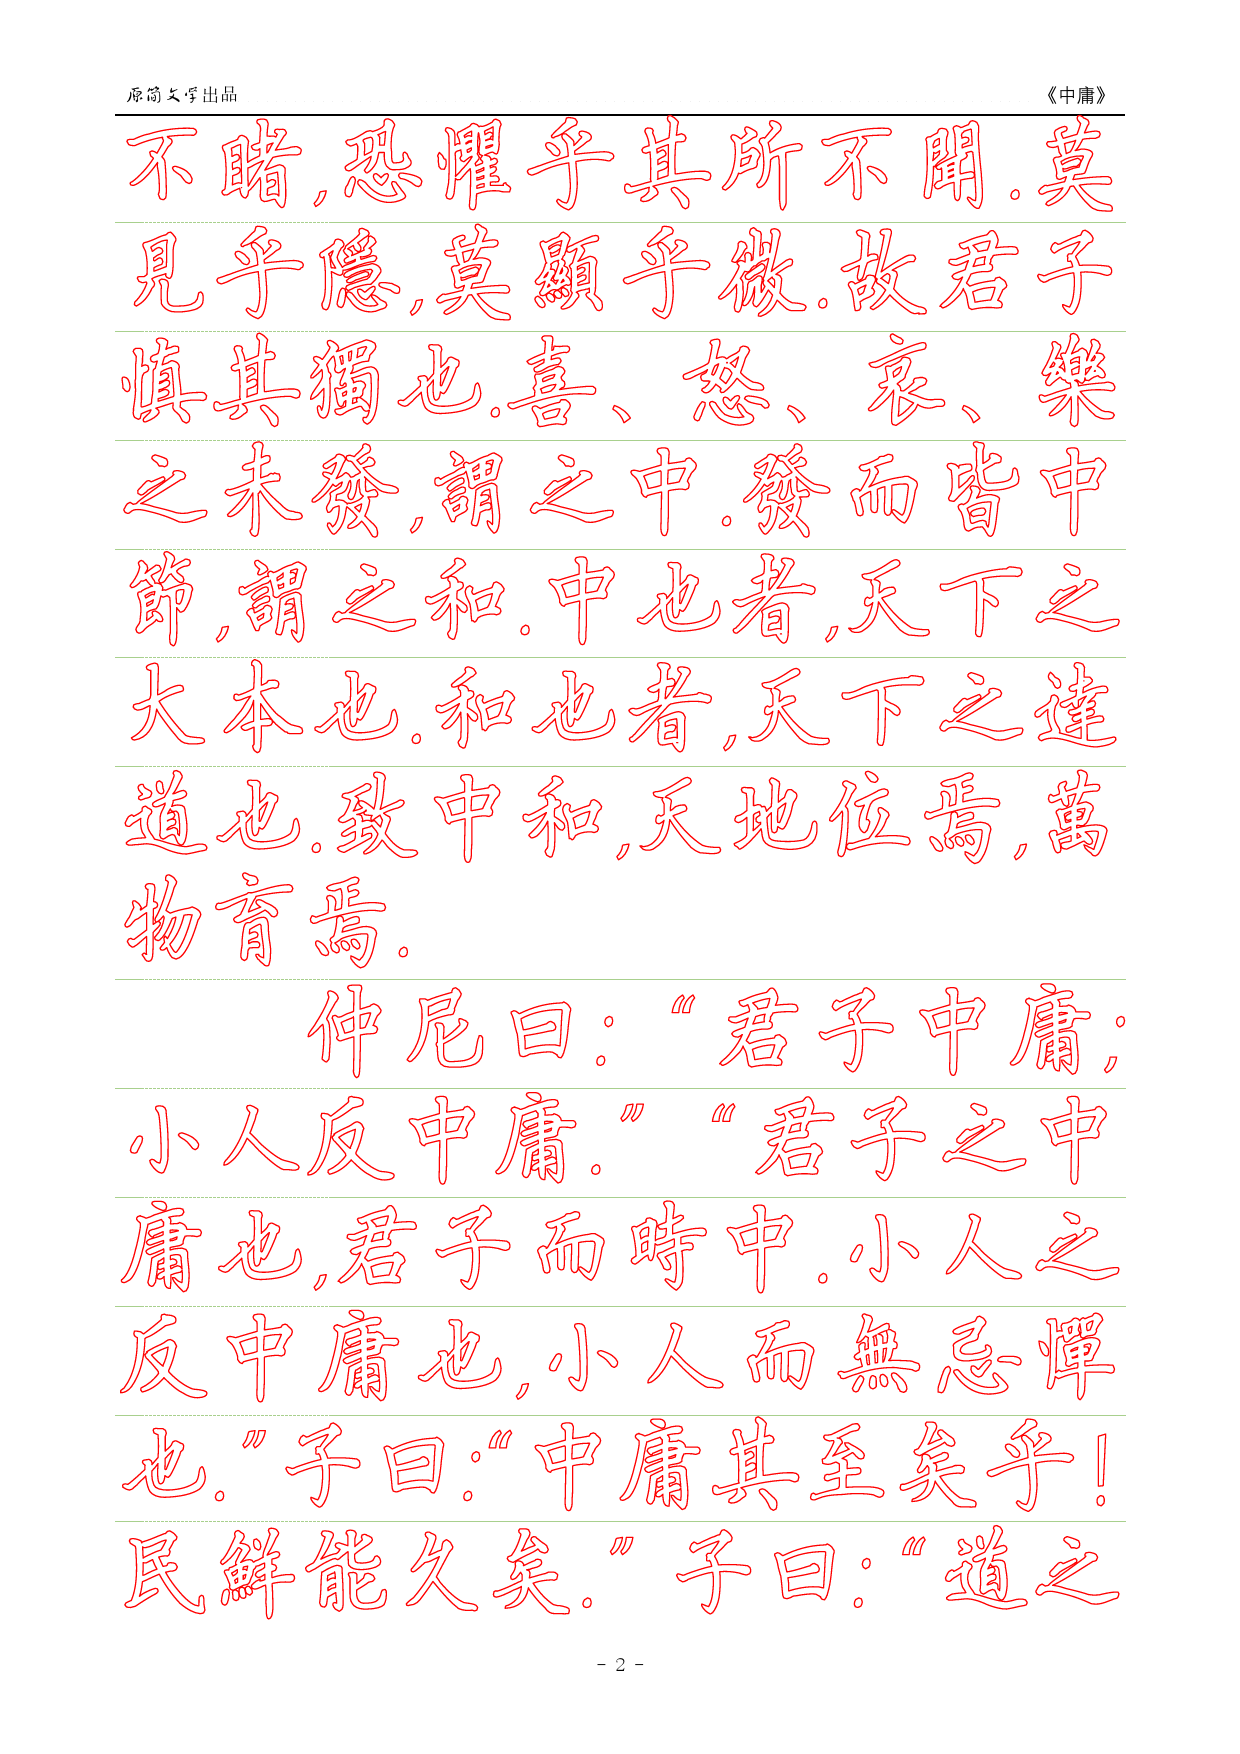 原简文学出品 《中庸》
不睹,恐懼乎其所不聞.莫
見乎隱,莫顯乎微.故君子
慎其獨也.喜、怒、哀、樂
之未發,謂之中.發而皆中
節,謂之和.中也者,天下之
大本也.和也者,天下之達
道也.致中和,天地位焉,萬
物育焉.
仲尼曰:“君子中庸;
小人反中庸.”“君子之中
庸也,君子而時中.小人之
反中庸也,小人而無忌憚
也.”子曰:“中庸其至矣乎!
民鮮能久矣.”子曰:“道之
- 2 -